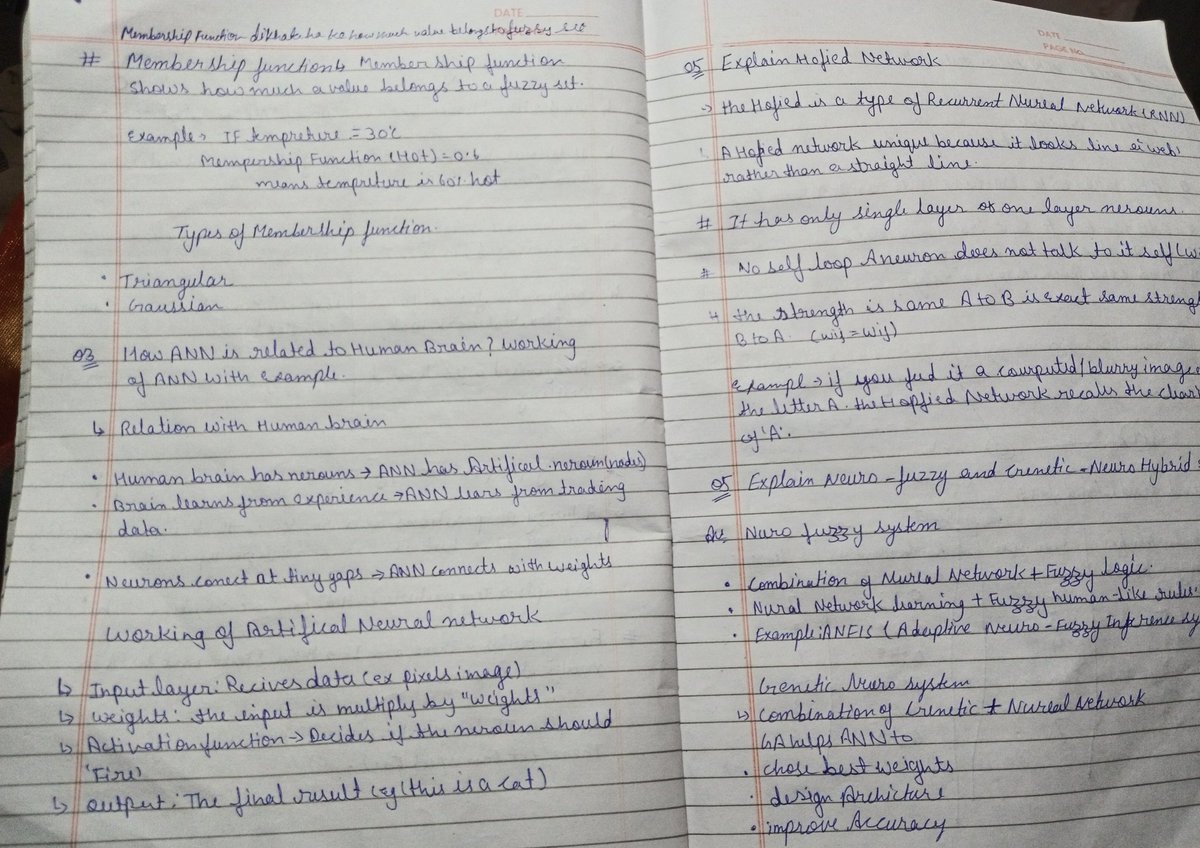 DATE
Membership Function dikhata ha ka how much value belongs to fuzzy set
# Membership function ↳ Member ship function
shows how much a value belongs to a fuzzy set.
Example → IF tempreture = 30°c
Mempership Function (Hot) = 0.6
means tempreture is 60% hot
Types of Membership function.
• Triangular
• Gaussian
Q3 How ANN is related to Human Brain? Working
of ANN with example.
↳ Relation with Human brain
• Human brain has nerouns → ANN has Artifical neroun (nodes)
• Brain learns from experience → ANN lears from trading
data.
• Neurons conect at tiny gaps → ANN connects with weights
Working of Artifical Neural network
↳ Input layer: Recives data (ex pixels image)
↳ weights: the input is multiply by "weights"
↳ Activation function → Decides if the neroun should
'Fire'
↳ output: The final result eg (this is a cat)
DATE
PAGE NO.
Q5 Explain Hofied Network
→ the Hofied is a type of Recurrent Nureal Network (RNN)
A Hofied network unique because it looks line a 'web'
rather than a straight line.
# It has only single layer or one layer nerouns.
# No self loop A neuron does not talk to it self
↳ the strength is same A to B is exact same
B to A. (wij = wij)
Exampl → if you fed it a couputed/blurry image
the letter A. the Hopfied Network recalls the
of 'A'.
Q5 Explain Neuro-fuzzy and Genetic-Neuro Hybrid
Av. Nuro fuzzy system
• Combination of Nureal Network + Fuzzy logic.
• Nural Network learning + Fuzzy human-like rules.
• Example: ANFIS (Adaptive Neuro-Fuzzy Inference
Genetic Nuro system
↳ combination of Genetic + Nureal Network
GA helps ANN to
• chose best weights
• design Archicture
• improve Accuracy